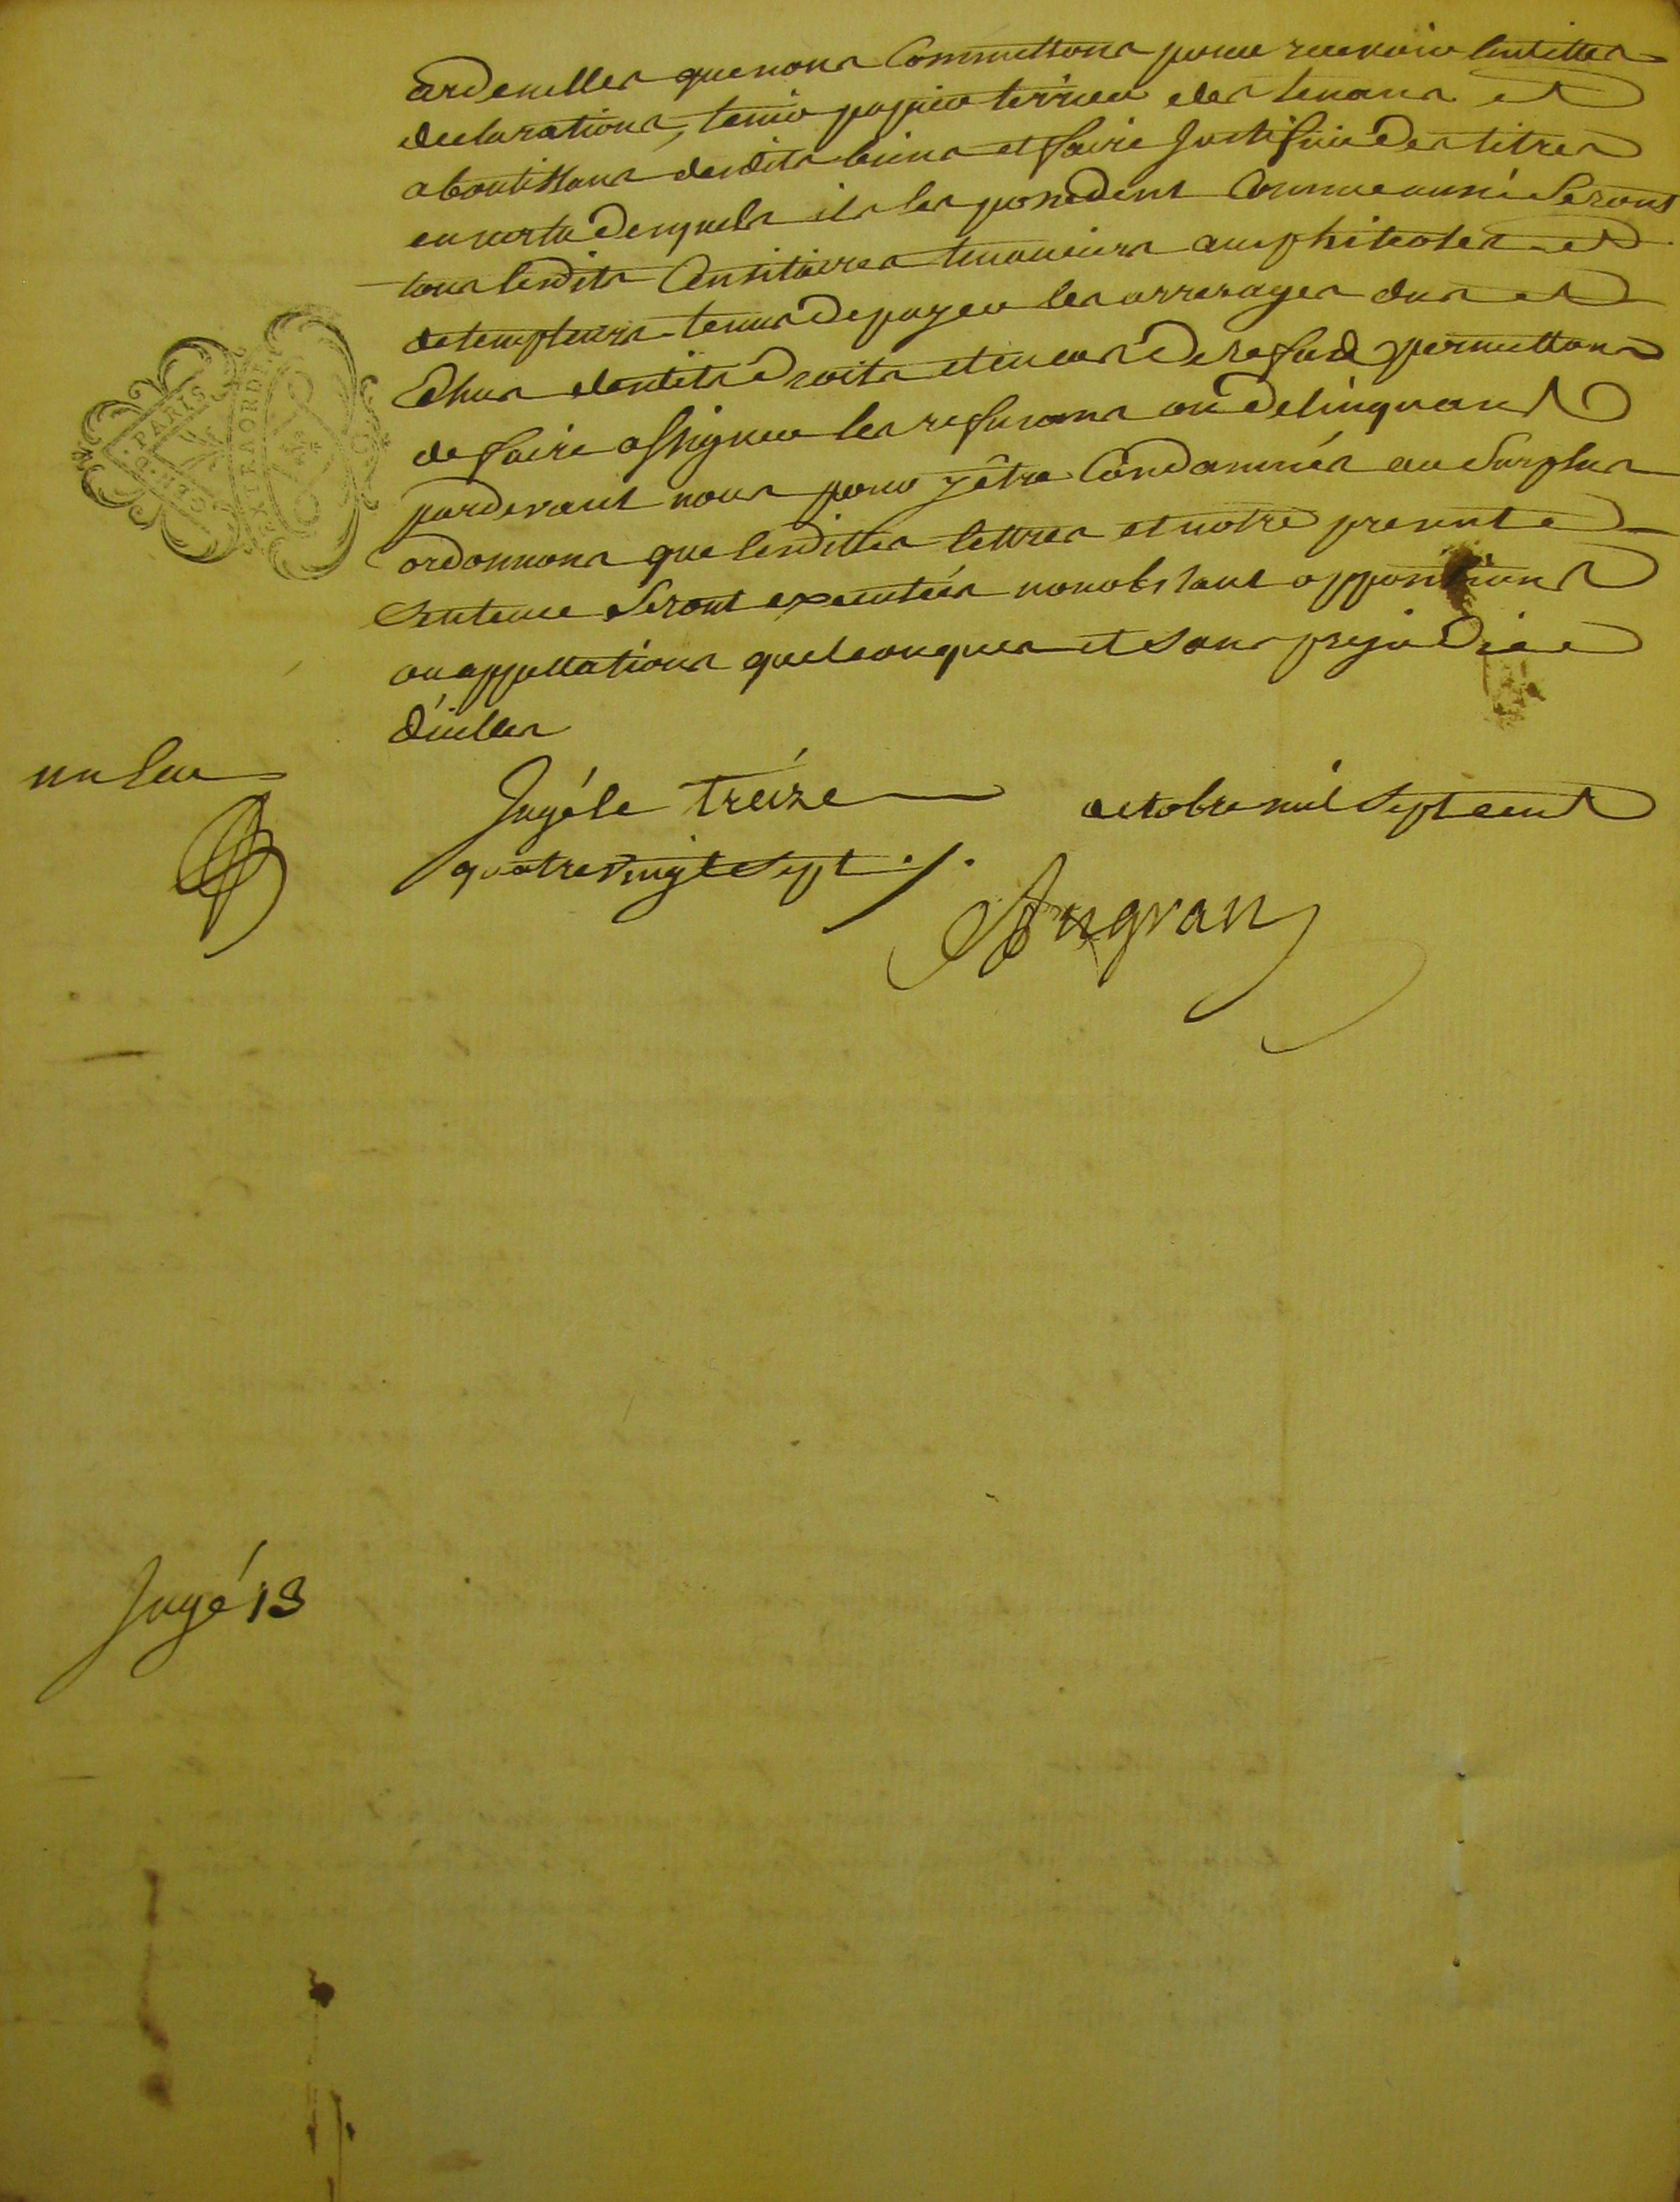 ardenelles que nous Commettons pour recevoir lesdittes
declarations, tenir papier terrier des tenans et
aboutissans desdits biens et faire justifier des titres
en vertu desquels ils les possedent Comme aussi Seront
tous lesdits Censitaires tenanciers amphiteotes et
detempteurs tenus de payer les arrerages dus et
Echus desdits droits et en cas de refus permettons
de faire assigner les refusans ou delinquans
pardevant nous pour y être Condamnés au Surplus
ordonnons que lesdittes lettres et notre presente
Sentence Seront executées nonobstant oppositions
ou appellations quelconques et sans prejudice
d'icelles
PARIS
EXTRAORD
Jugé le treize octobre mil Sept cent
quatre vingt Sept ./.
Angran
Jugé 13